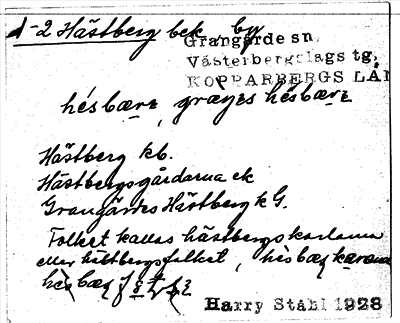 d-2 Hästberg bek, by
Grangärde sn,
Västerbergslags tg,
KOPPARBERGS LÄN
hésbærɛ, græŋɛs hésbærɛ
Hästberg kb.
Hästbergsgårdarna ek
Grangärdes Hästberg k G.
Folket kallas hästbergskarlarna
eller hästbergsfolket,
Harry Ståhl 1928